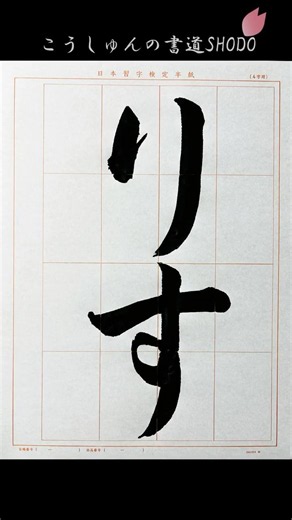 こうしゅんの書道SHODO
日本習字検定半紙
りす